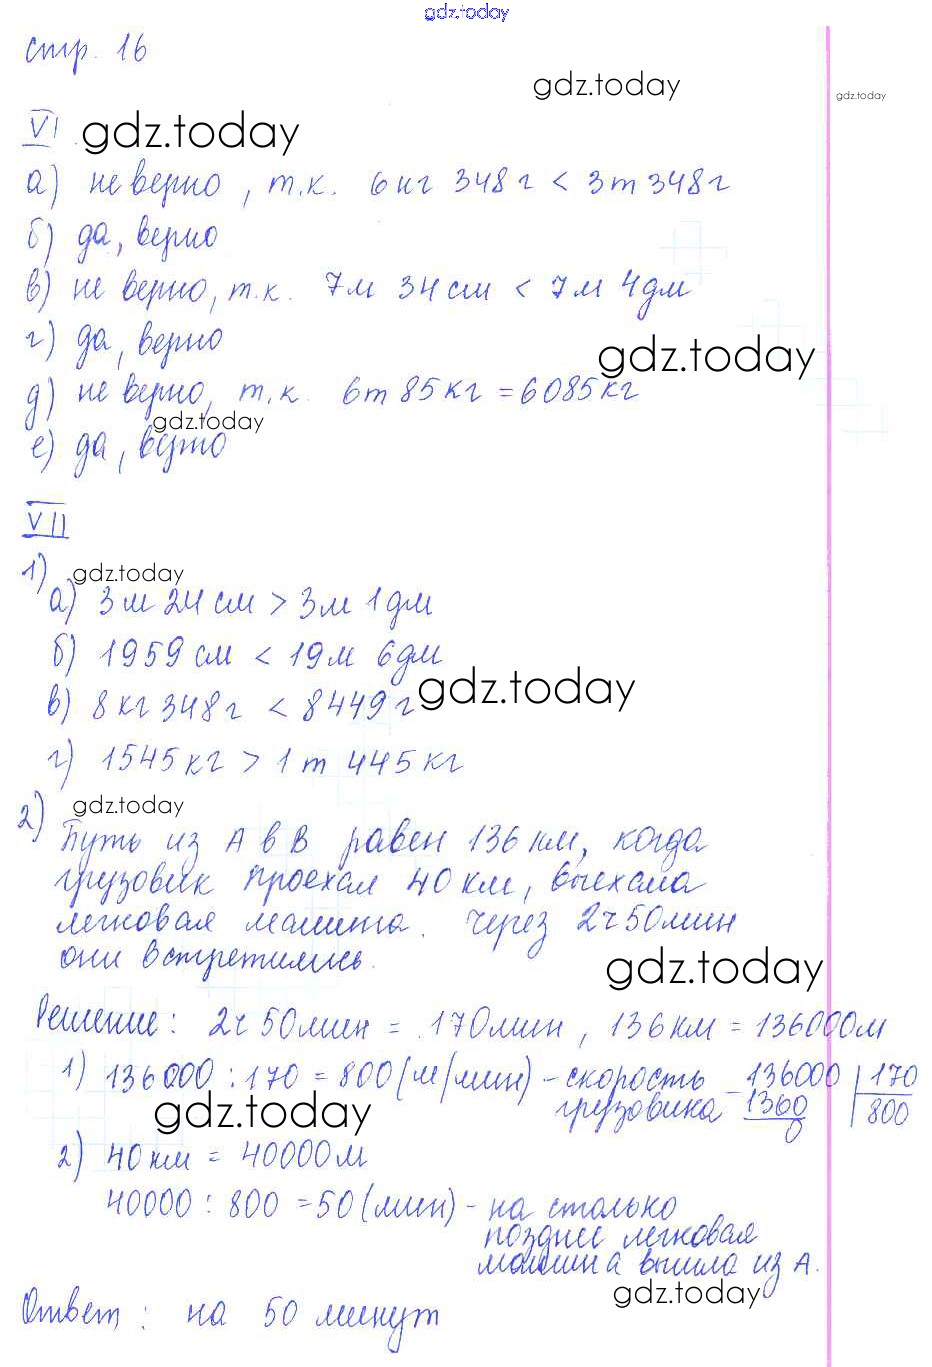 gdz.today
стр. 16
gdz.today
gdz.today
VI gdz.today
а) не верно, т.к. 6 кг 348 г < 3 т 348 г
б) да, верно
в) не верно, т.к. 7 м 34 см < 7 м 4 дм
г) да, верно
gdz.today
д) не верно, т.к. 6 т 85 кг = 6085 кг
gdz.today
е) да, верно
VII
1) gdz.today
а) 3 м 24 см > 3 м 1 дм
б) 1959 см < 19 м 6 дм
в) 8 кг 348 г < 8449 г gdz.today
г) 1545 кг > 1 т 445 кг
2) gdz.today
Путь из А в В равен 136 км, когда
грузовик проехал 40 км, выехала
легковая машина. Через 2 ч 50 мин
они встретились.
gdz.today
Решение: 2 ч 50 мин = 170 мин, 136 км = 136000 м
1) 136000 : 170 = 800 (м/мин) - скорость 136000 170
грузовика 1360 800
gdz.today 0
2) 40 км = 40000 м
40000 : 800 = 50 (мин) - на столько
позднее легковая
машина вышла из А.
gdz.today
Ответ: на 50 минут